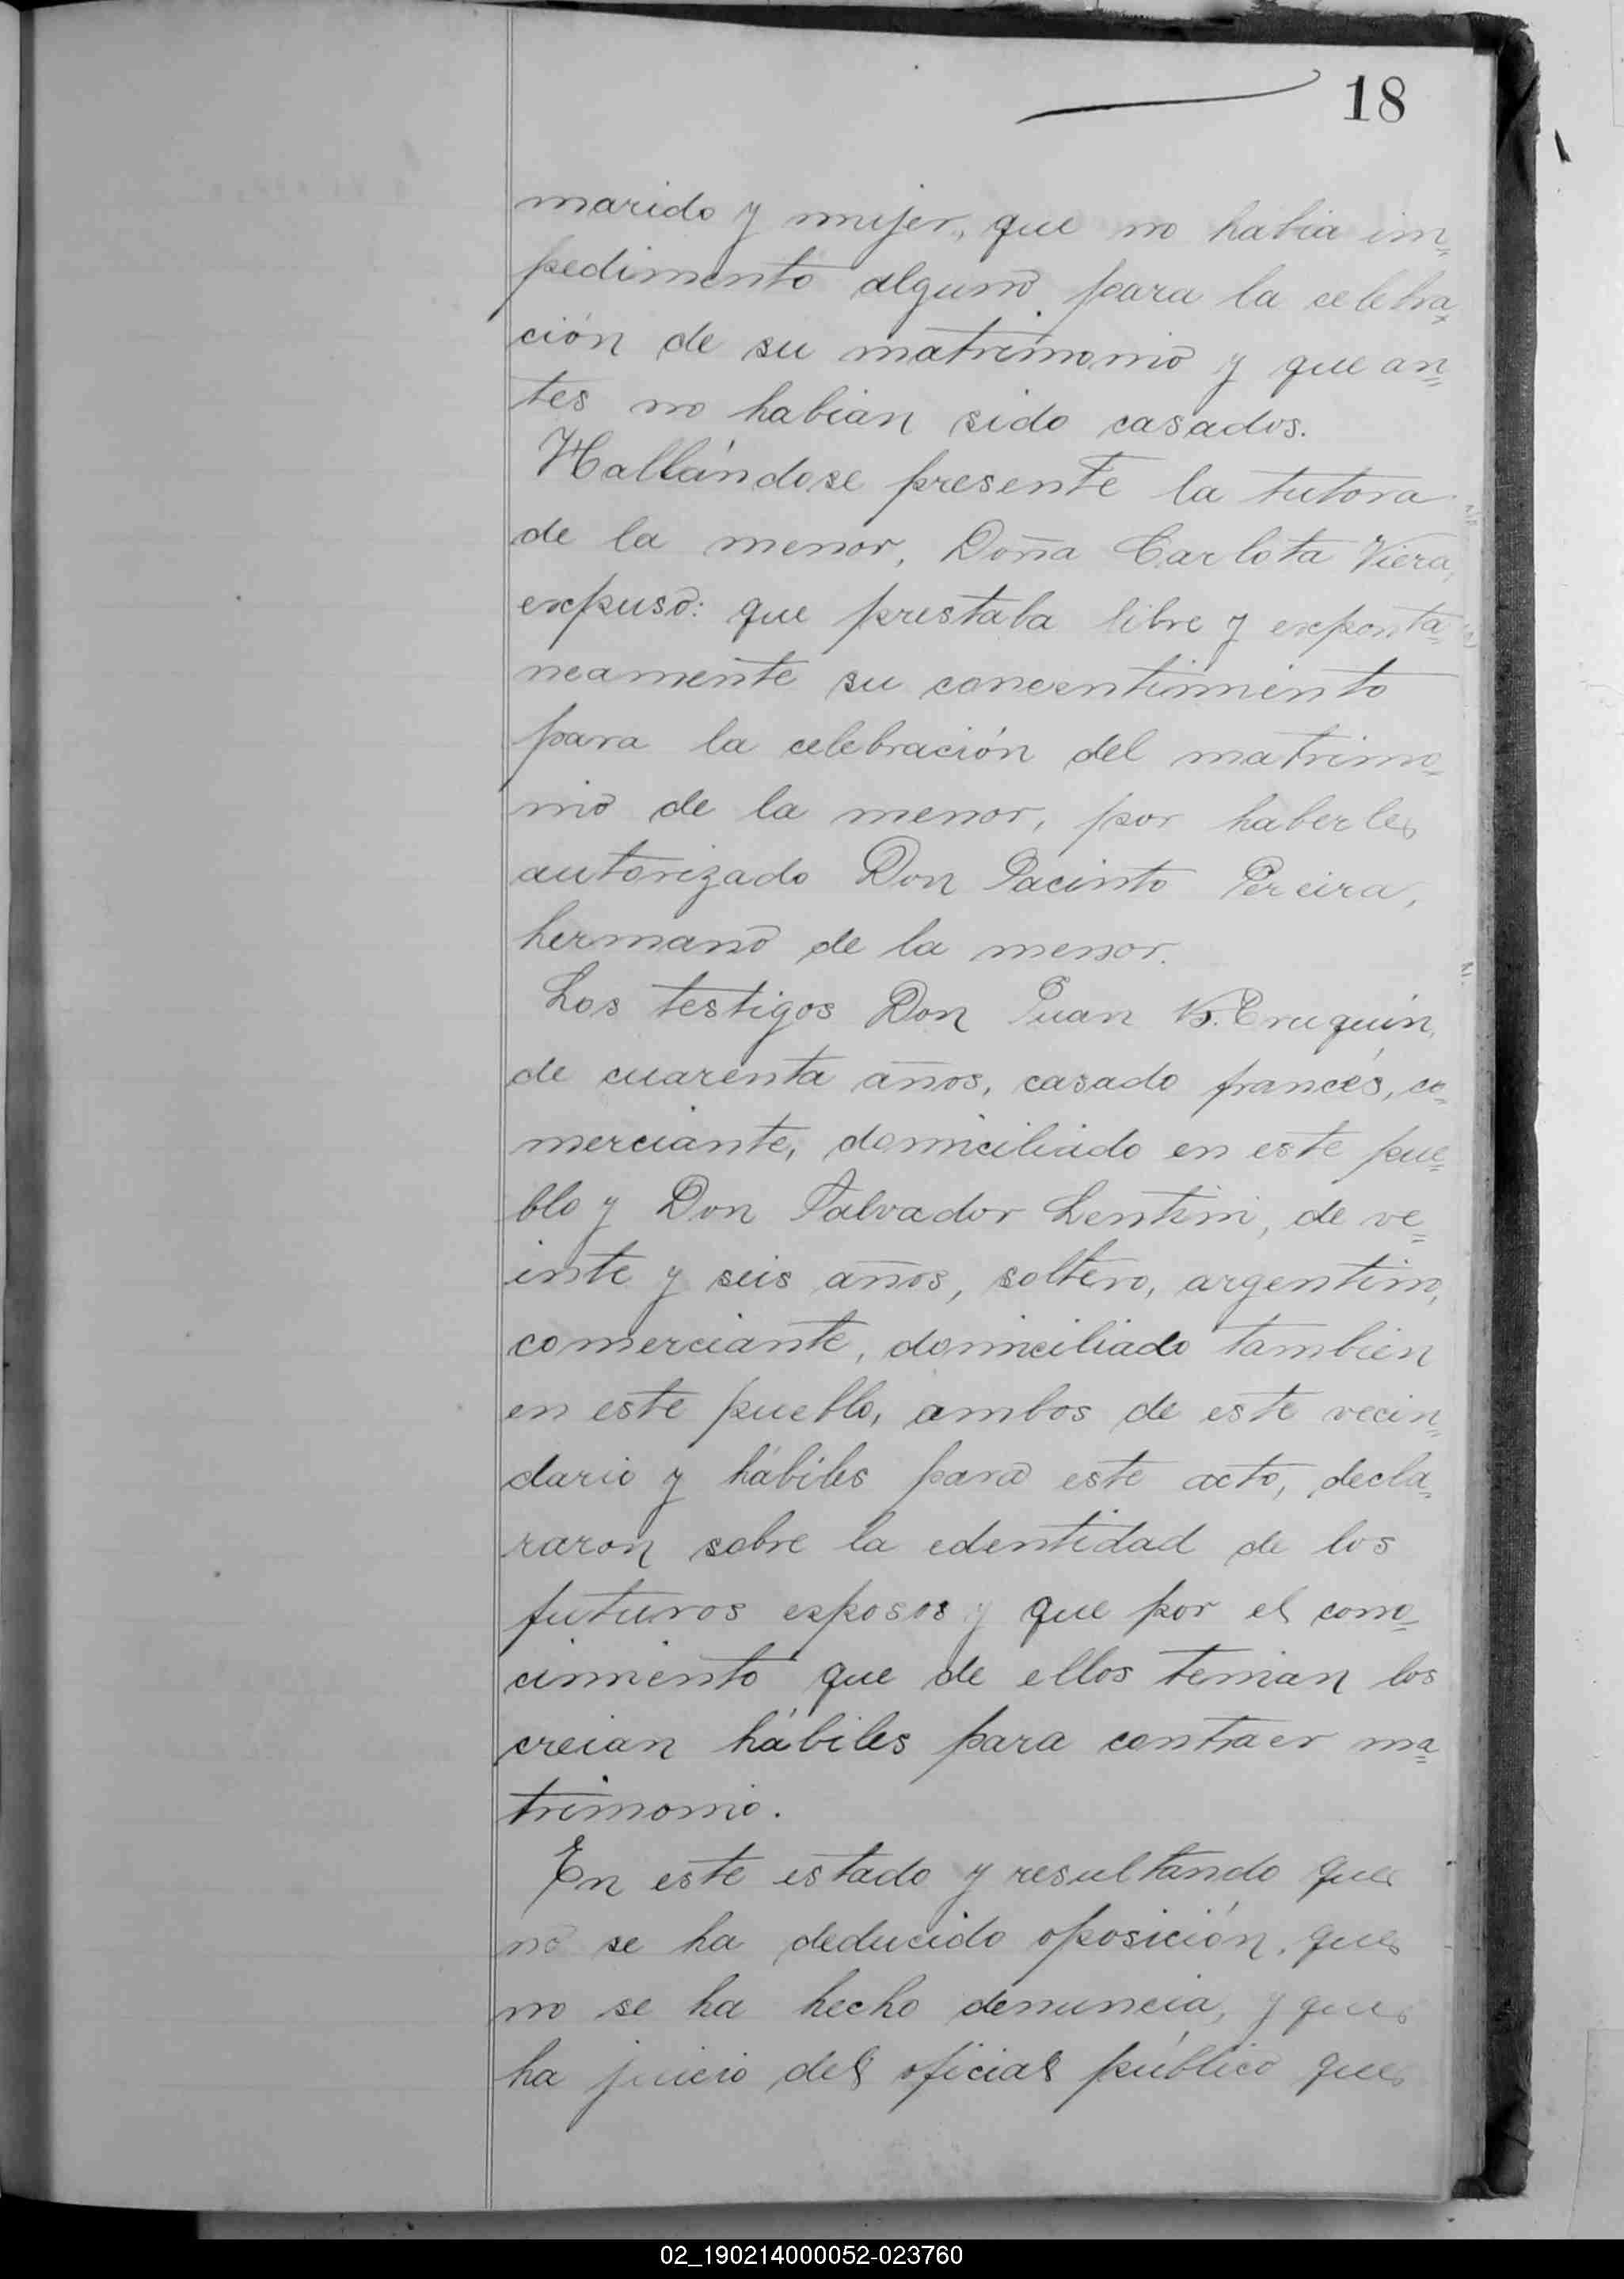 18
marido y mujer, que no habia im=
pedimento alguno para la celebra=
ción de su matrimonio y que an=
tes no habian sido casados.
Hallándose presente la tutora
de la menor, Doña Carlota Viera,
expuso: que prestaba libre y exponta=
neamente su concentimiento
para la celebración del matrimo=
nio de la menor, por haberle
autorizado Don Jacinto Pereira,
hermano de la menor.
Los testigos Don Juan B.
de cuarenta años, casado francés, co=
merciante, domiciliado en este pue=
blo y Don Salvador Lentini, de ve=
inte y seis años, soltero, argentino,
comerciante, domiciliado tambien
en este pueblo, ambos de este vecin=
dario y hábiles para este acto, decla=
raron sobre la edentidad de los
futuros esposos y que por el cono=
cimiento que de ellos tenian los
creian hábiles para contraer ma=
trimonio.
En este estado y resultando que
no se ha deducido oposición, que
no se ha hecho denuncia, y que
ha juicio del oficial público que
02_190214000052-023760